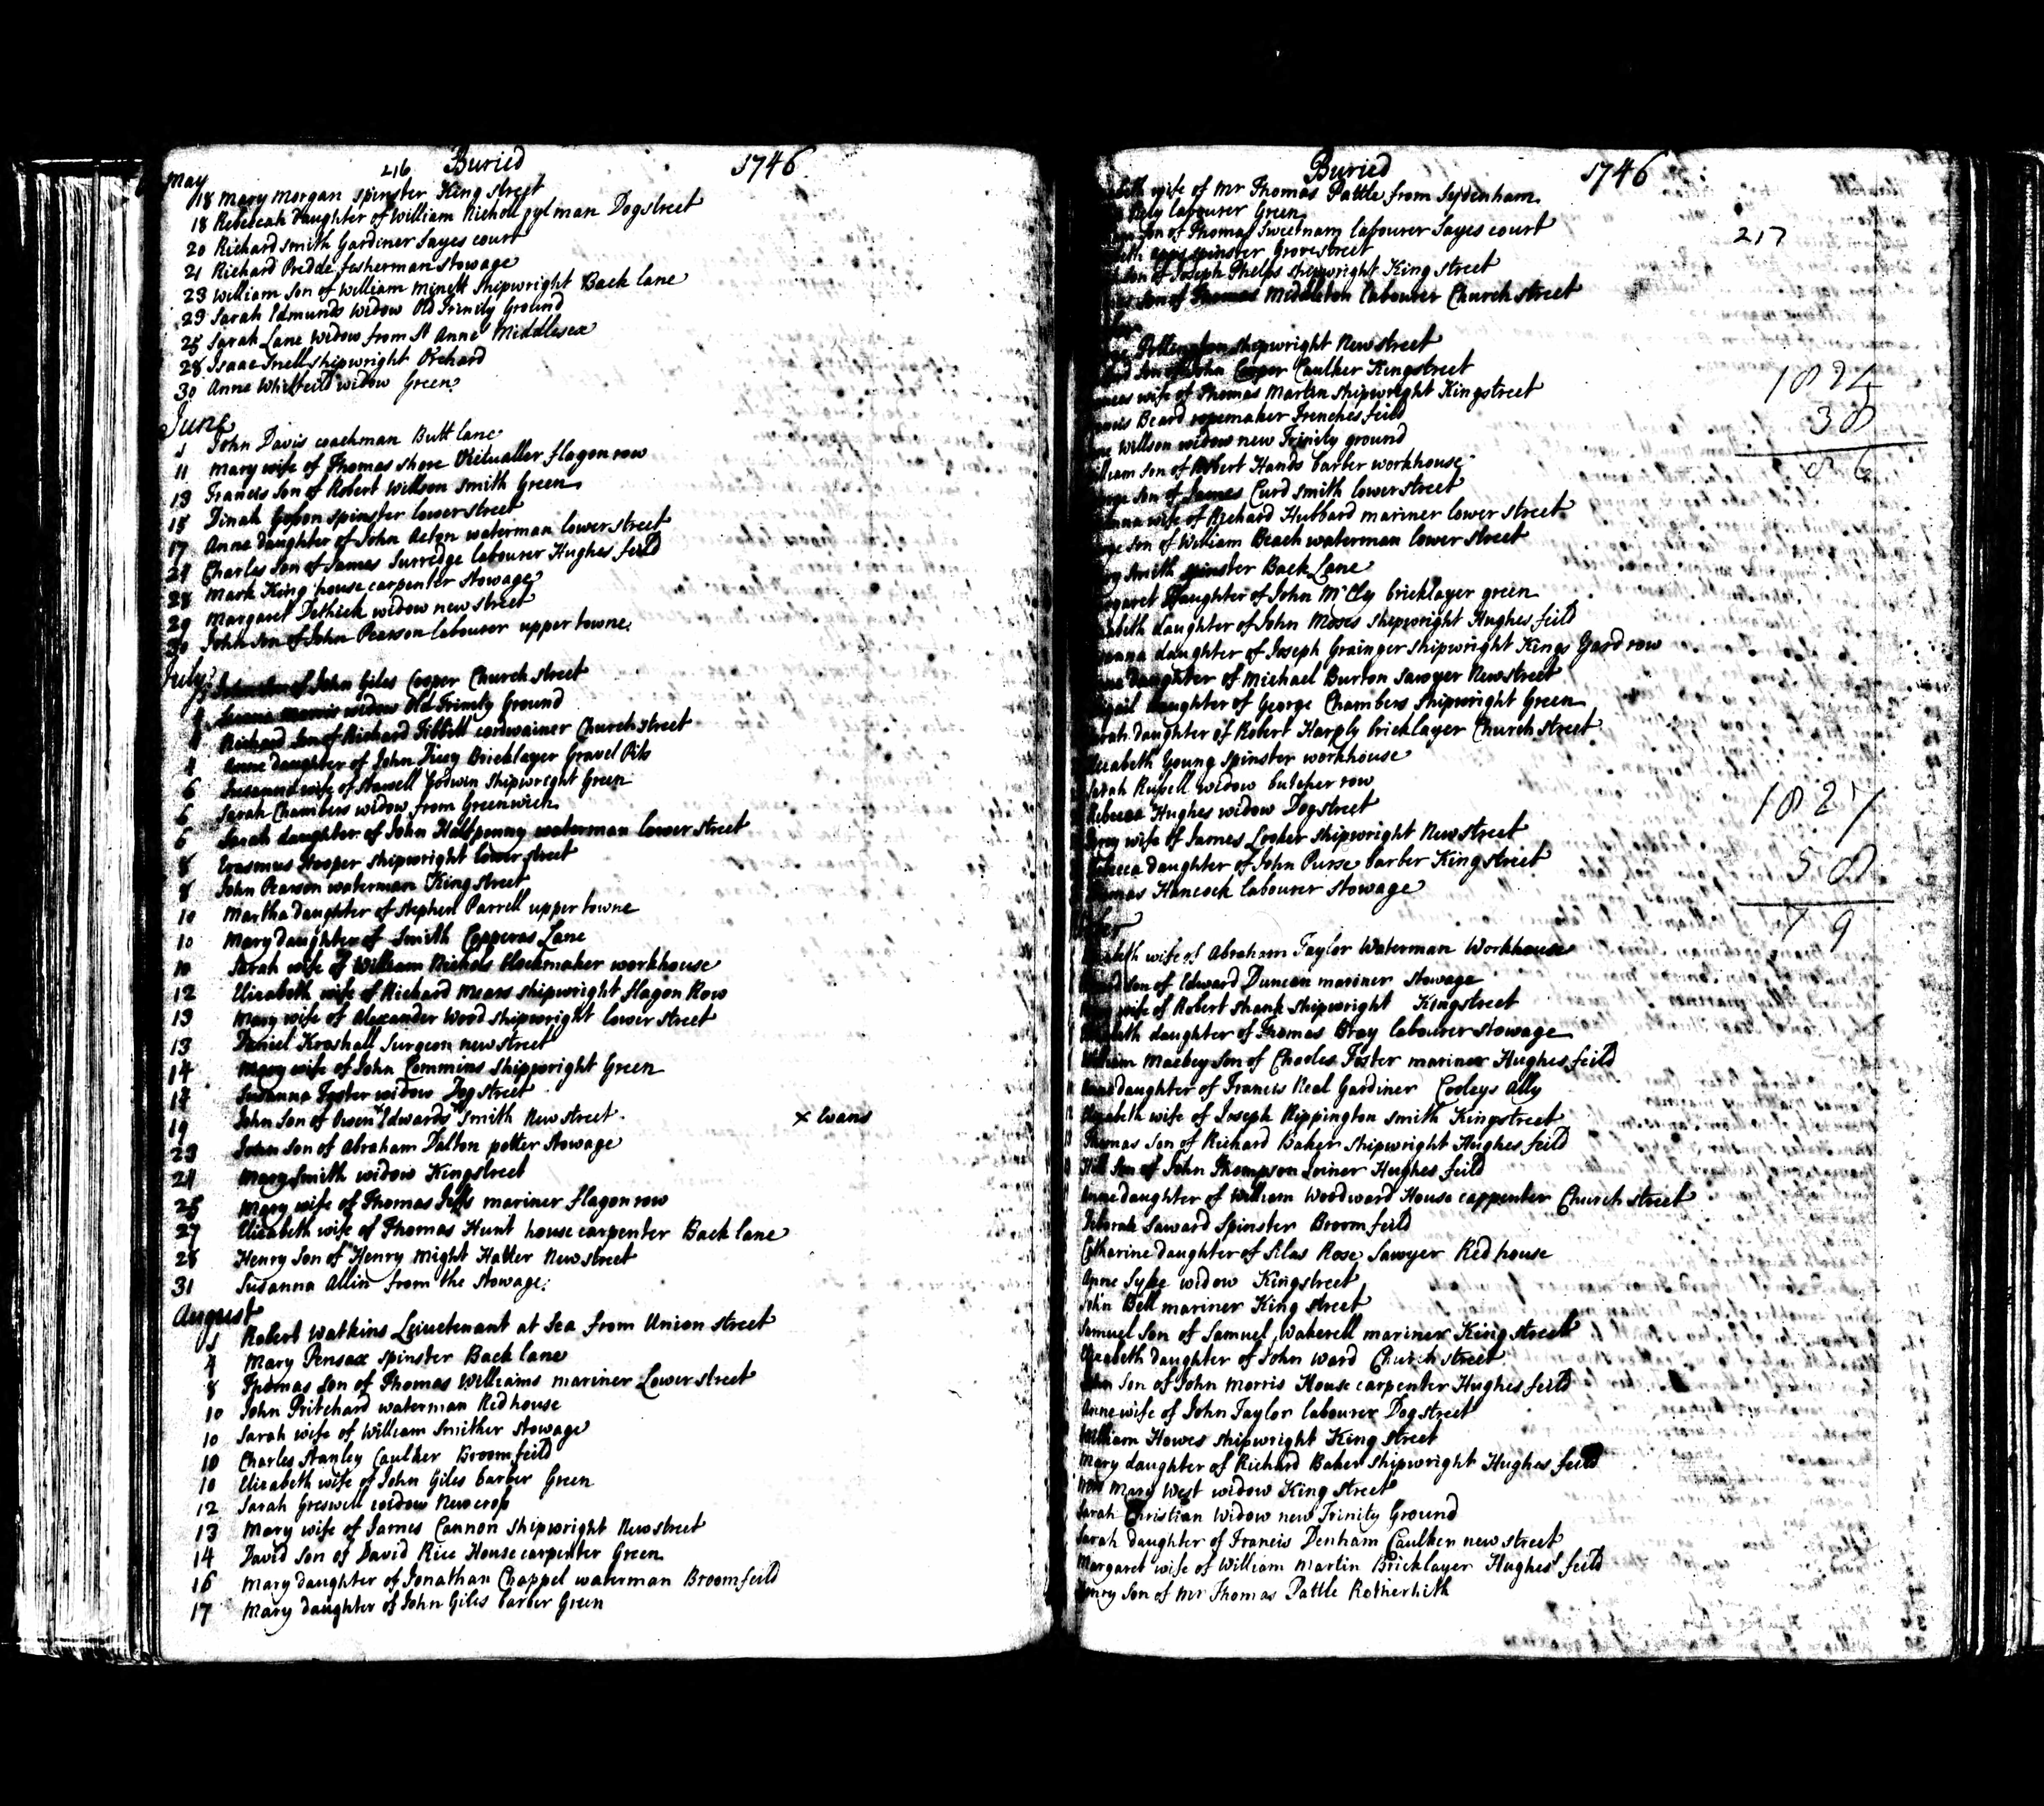 216 Buried 1746
May
18 Mary Morgan spinster King street
18 Rebeccah Daughter of William Nicholl Dogstreet
20 Richard Smith Gardiner Sayes court
21 Richard Predde fisherman stowage
23 William Son of William Minett Shipwright Back lane
23 Sarah Edmunds Widow Old Trinity Ground
25 Sarah Lane Widow from St Anne Middlesex
28 Isaac Snell shipwright Orchard
30 Anne Whitfeild widow Green
June
1 John Davis coachman Butt lane
11 Mary wife of Thomas Shore Victualler flagon row
13 Francis Son of Robert Willson Smith Green
15 Dinah spinster lower street
17 Anne daughter of John Acton waterman lower street
24 Charles Son of James Surredge labourer Hughes feild
28 Mark King house carpenter stowage
29 Margaret Dethick widow new street
30 John Son of John Pearson labourer upper towne
July
of John Giles Cooper Church street
widow Old Trinity Ground
Richard Son of Richard Tibbitt cordwainer Church street
4 Anne daughter of John Bricklayer Gravel Pits
6 Susanna wife of Godwin Shipwright Green
6 Sarah Chambers widow from Greenwich
6 Sarah daughter of John Halfpenny waterman lower street
8 Erasmus Hooper shipwright lower street
8 John Pearson waterman King street
10 Martha daughter of Stephen Parrell upper towne
10 Mary daughter of Smith Copperas Lane
10 Sarah wife of William Nichols blockmaker workhouse
12 Elizabeth wife of Richard Mears shipwright flagon Row
13 Mary wife of Alexander Wood shipwright lower street
13 Daniel Kroshall Surgeon new street
14 Mary wife of John Commins Shipwright Green
17 Susanna Foster widow Dog street
19 John Son of Owen x Edwards Smith New street x Evans
23 John Son of Abraham Dalton potter Stowage
24 Mary Smith widow Kingstreet
25 Mary wife of Thomas mariner flagon row
27 Elizabeth wife of Thomas Hunt house carpenter Back lane
28 Henry Son of Henry Might Hatter New street
31 Susanna Allin from the Stowage
August
1 Robert Watkins Leiuetenant at Sea from Union street
4 Mary Pensax spinster Back lane
8 Thomas Son of Thomas Williams mariner Lower street
10 John Pritchard waterman Red house
10 Sarah wife of William Smither Stowage
10 Charles Stanley Caulker Broomfeild
10 Elizabeth wife of John Giles barber Green
12 Sarah Greswell widow New crop
13 Mary wife of James Cannon Shipwright New street
14 David Son of David Rice House carpenter Green
16 Mary daughter of Jonathan Chappel waterman Broomfeild
17 Mary daughter of John Giles barber Green
Buried 1746
217
wife of Mr Thomas Pattle from Sydenham
labourer Green
Son of Thomas Sweetnam labourer Sayes court
spinster Grove street
Son of Joseph Phelps Shipwright King street
Son of Thomas Middleton Labourer Church street
shipwright New street
Son of John Cooper Caulker Kingstreet
wife of Thomas Martin Shipwright Kingstreet
Beard ropemaker Frenches feild
Willson widow new Trinity ground
William Son of Robert Hands barber workhouse
Son of James Curd smith lower street
wife of Richard Hubbard mariner lower street
Son of William Beach waterman lower street
Smith spinster Back Lane
Margaret Daughter of John McCly bricklayer green
daughter of John Moses Shipwright Hughes feild
daughter of Joseph Grainger Shipwright Kings Yard row
daughter of Michael Burton Sawyer New street
daughter of George Chambers Shipwright Green
Sarah daughter of Robert Harply bricklayer Church street
Elizabeth Young Spinster workhouse
Sarah Russell Widow butcher row
Rebecca Hughes widow Dogstreet
wife of James Looker shipwright New street
Rebecca daughter of John Purse barber King street
Thomas Hancock labourer Stowage
wife of Abraham Taylor Waterman Workhouse
Son of Edward Duncan mariner Stowage
wife of Robert Shank Shipwright Kingstreet
daughter of Thomas Bray labourer Stowage
William Macbey Son of Charles Foster mariner Hughes feild
daughter of Francis Neal Gardiner Cooleys Ally
Elizabeth wife of Joseph Rippington smith Kingstreet
Thomas Son of Richard Baker shipwright Hughes feild
Son of John Thompson Joiner Hughes feild
Anne daughter of William Woodward House carppenter Church street
Deborah Saward Spinster Broomfeild
Catharine daughter of Silas Rose Sawyer Red house
Anne Syke widow Kingstreet
John Bell mariner King street
Samuel Son of Samuel Wakerell mariner King street
Elizabeth daughter of John Ward Church street
John Son of John Morris House carpenter Hughes feild
Anne wife of John Taylor labourer Dogstreet
William Howes Shipwright King street
Mary daughter of Richard Baker Shipwright Hughes feild
Mary West widow King street
Sarah Christian Widow new Trinity Ground
Sarah daughter of Francis Denham Caulker new street
Margaret wife of William Martin Bricklayer Hughes feild
Henry Son of Mr Thomas Pattle Rotherhith
1824
38
86
1827
58
79